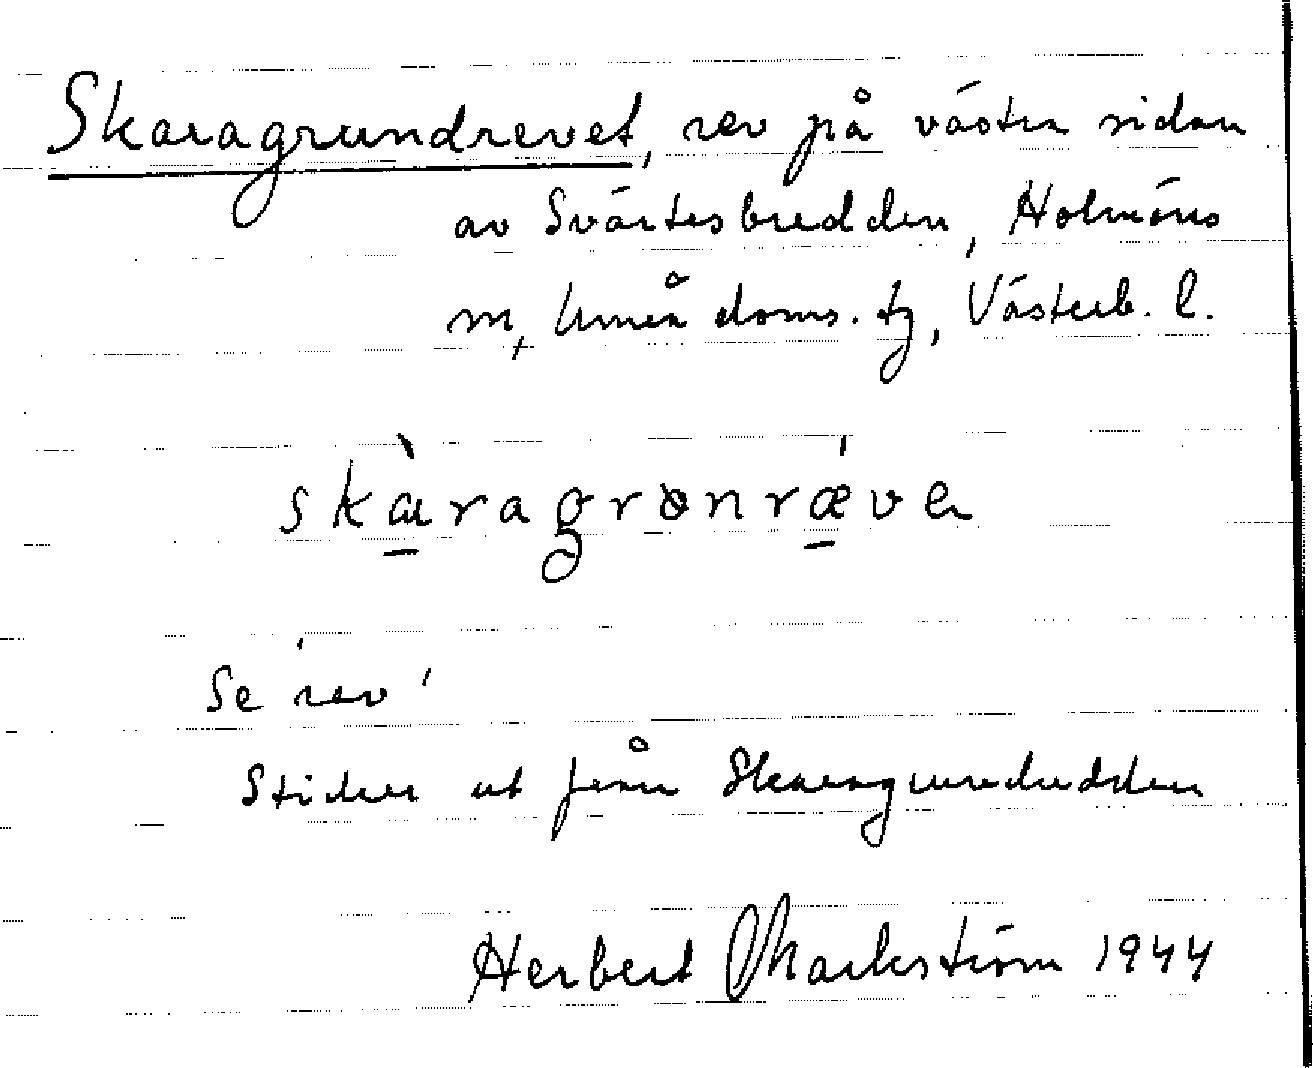 Skaragrundrevet, rev på västra sidan
av Svärtesbredden, Holmöns
sn, Umeå doms. tg, Västerb. l.
skàragrɷnrǽvɘ
Se 'rev'
Sticker ut från Skaragrundudden
Herbert Markström 1944